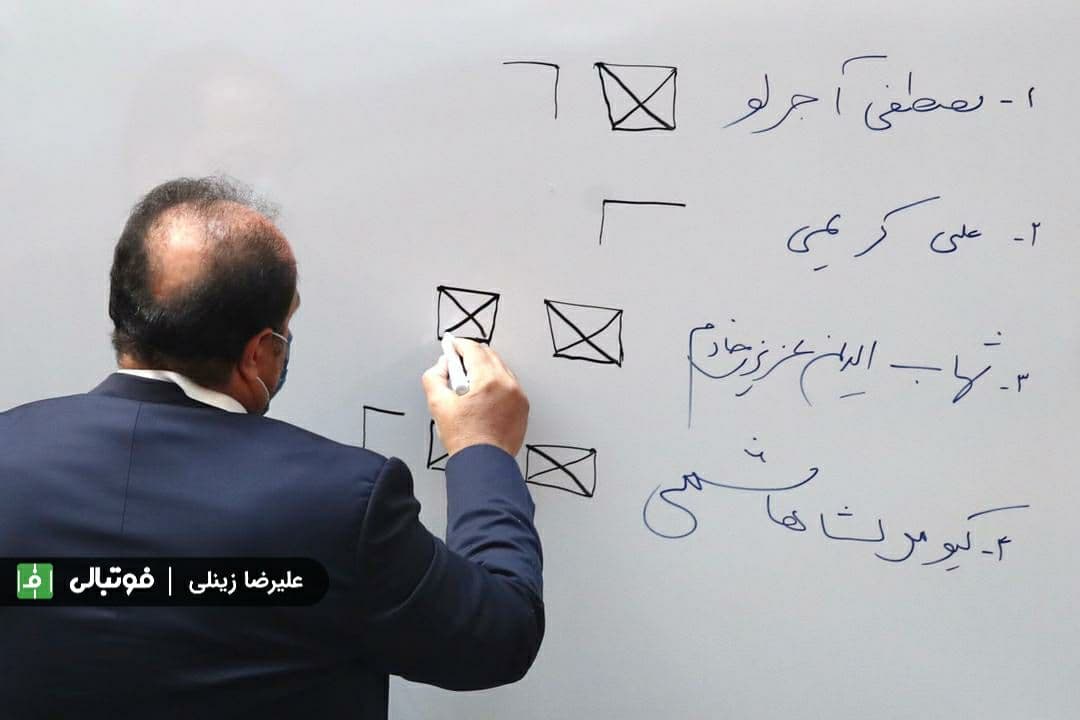 ۱- مصطفی آجرلو
۲- علی کریمی
۳- شهاب الدین عزیزی خادم
۴- کیومرث هاشمی
فوتبالی | علیرضا زینلی